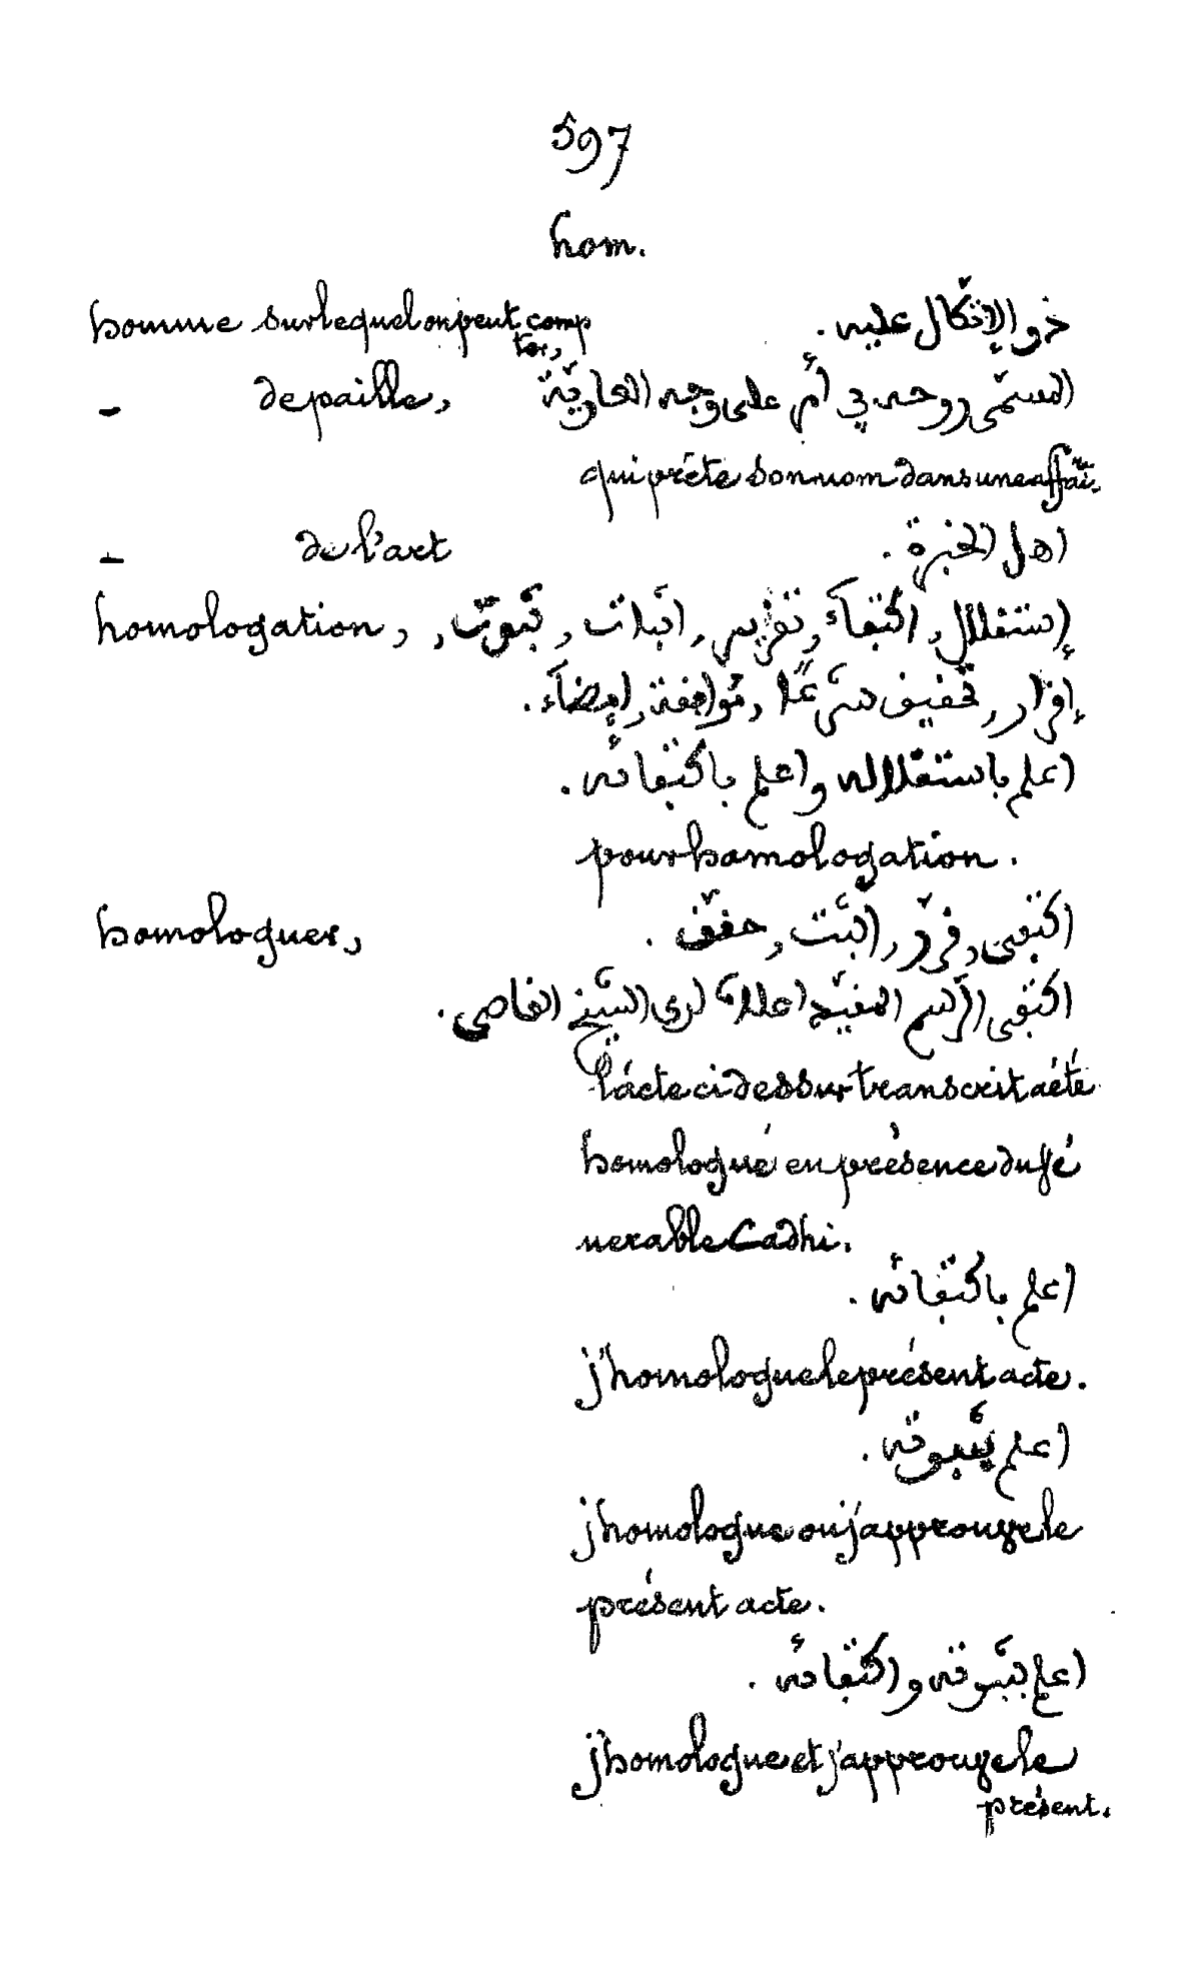 597
hom.
homme sur lequel on peut comp ذو الإتّكال عليه.
ter,
- de paille, المسمّى روحه في أمر على وجه العاريّة
qui prête son nom dans une affai.
- de l'art اهل الخبرة.
homologation, إستقلال, اكتفاء, تقرير, اثبات, ثبوت,
إقرار, تحقيق شرعًا, موافقة, إمضاء.
اعلم باستقلاله واعلم باكتفائه.
pour homologation.
homologuer, اكتفى, قرّر, اثبت, حقّق.
اكتفى الرّسم المقيّد اعلاه لدى الشّيخ القاضي.
l'acte ci dessur transcrit a été
homologué en présence du vé
nerable Cadhi.
اعلم باكتفائه.
j'homologue le présent acte.
اعلم بثبوته.
j'homologue ou j'approuve le
présent acte.
اعلم بثبوته واكتفائه.
j'homologue et j'approuve le
présent.